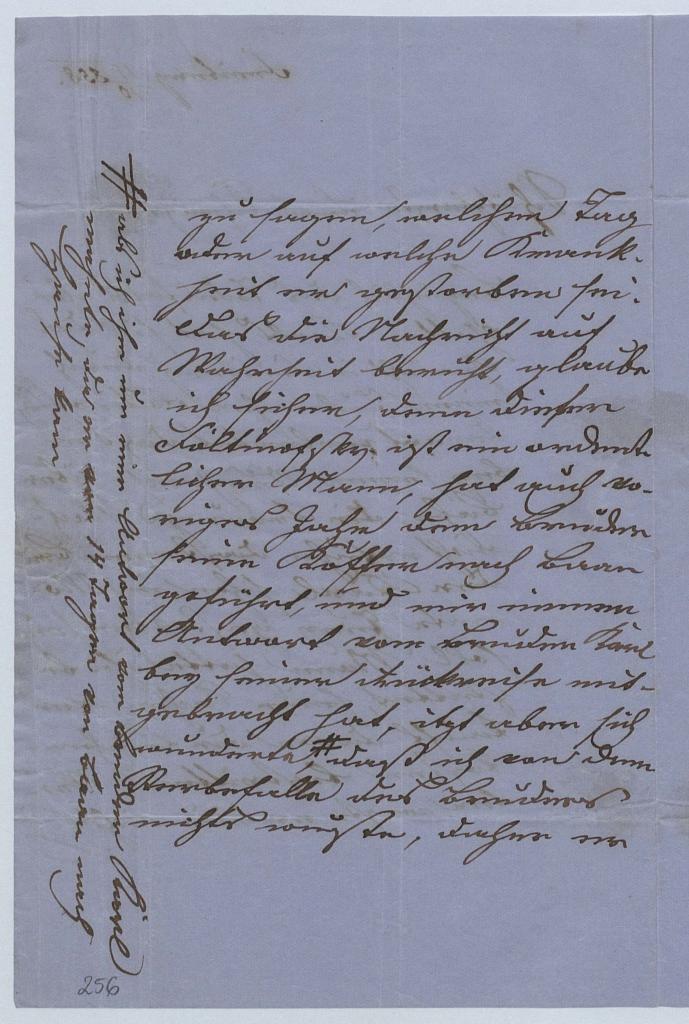 zu sagen, welchen Tag
oder auf welche Krank-
heit er gestorben sei.
Das die Nachricht auf
Wahrheit beruht, glaube
ich sicher, denn dieser
ist ein ordent-
licher Mann, hat auch vo-
riges Jahr dem Bruder
seine Köffer nach Baan
geführt, und mir immer
Antwort vom Bruder Karl
bey seiner Rückreise mit-
gebracht hat, itzt aber sich
wunderte, # daß ich von dem
Sterbefalle des Bruders
nichts wuste, daher er
# als ich ihn um eine Antwort vom Bruder Karl
mahnte, da er vor 14 Tagen von Baan nach
Hause kam
256